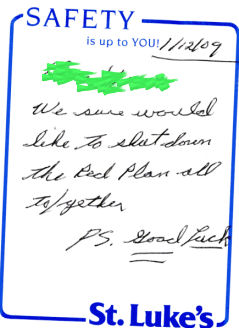 SAFETY
is up to YOU!
1/12/09
We sure would
like to shut down
the Red Plan all
to/gether
PS. Good Luck
St. Luke's